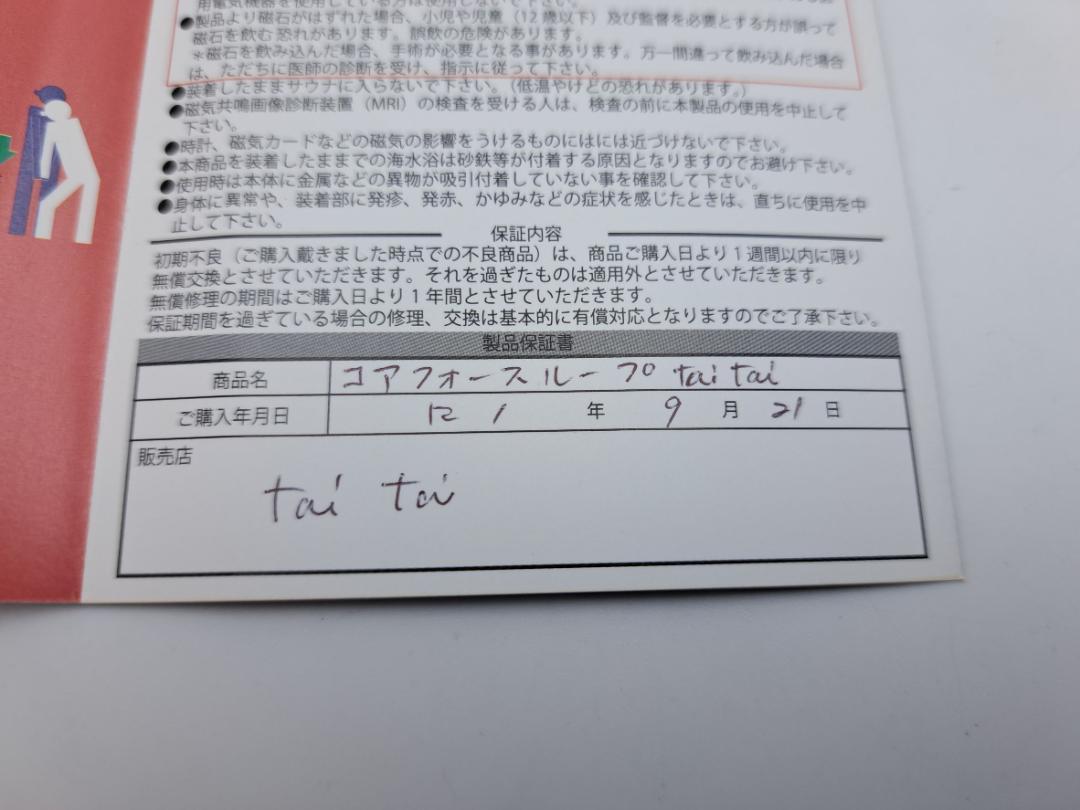 用電気機器を使用している方は使用しないで下さい。
●製品より磁石がはずれた場合、小児や児童（12歳以下）及び監督を必要とする方が誤って
磁石を飲む恐れがあります。誤飲の危険があります。
＊磁石を飲み込んだ場合、手術が必要となる事があります。万一間違って飲み込んだ場合
は、ただちに医師の診断を受け、指示に従って下さい。
●装着したままサウナに入らないで下さい。（低温やけどの恐れがあります。）
●磁気共鳴画像診断装置（MRI）の検査を受ける人は、検査の前に本製品の使用を中止して
下さい。
●時計、磁気カードなどの磁気の影響をうけるものにはには近づけないで下さい。
●本商品を装着したままでの海水浴は砂鉄等が付着する原因となりますのでお避け下さい。
●使用時は本体に金属などの異物が吸引付着していない事を確認して下さい。
●身体に異常や、装着部に発疹、発赤、かゆみなどの症状を感じたときは、直ちに使用を中
止して下さい。
保証内容
初期不良（ご購入戴きました時点での不良商品）は、商品ご購入日より1週間以内に限り
無償交換とさせていただきます。それを過ぎたものは適用外とさせていただきます。
無償修理の期間はご購入日より1年間とさせていただきます。
保証期間を過ぎている場合の修理、交換は基本的に有償対応となりますのでご了承下さい。
製品保証書
商品名 コアフォースループ tai tai
ご購入年月日 R 1 年 9 月 21 日
販売店
tai tai